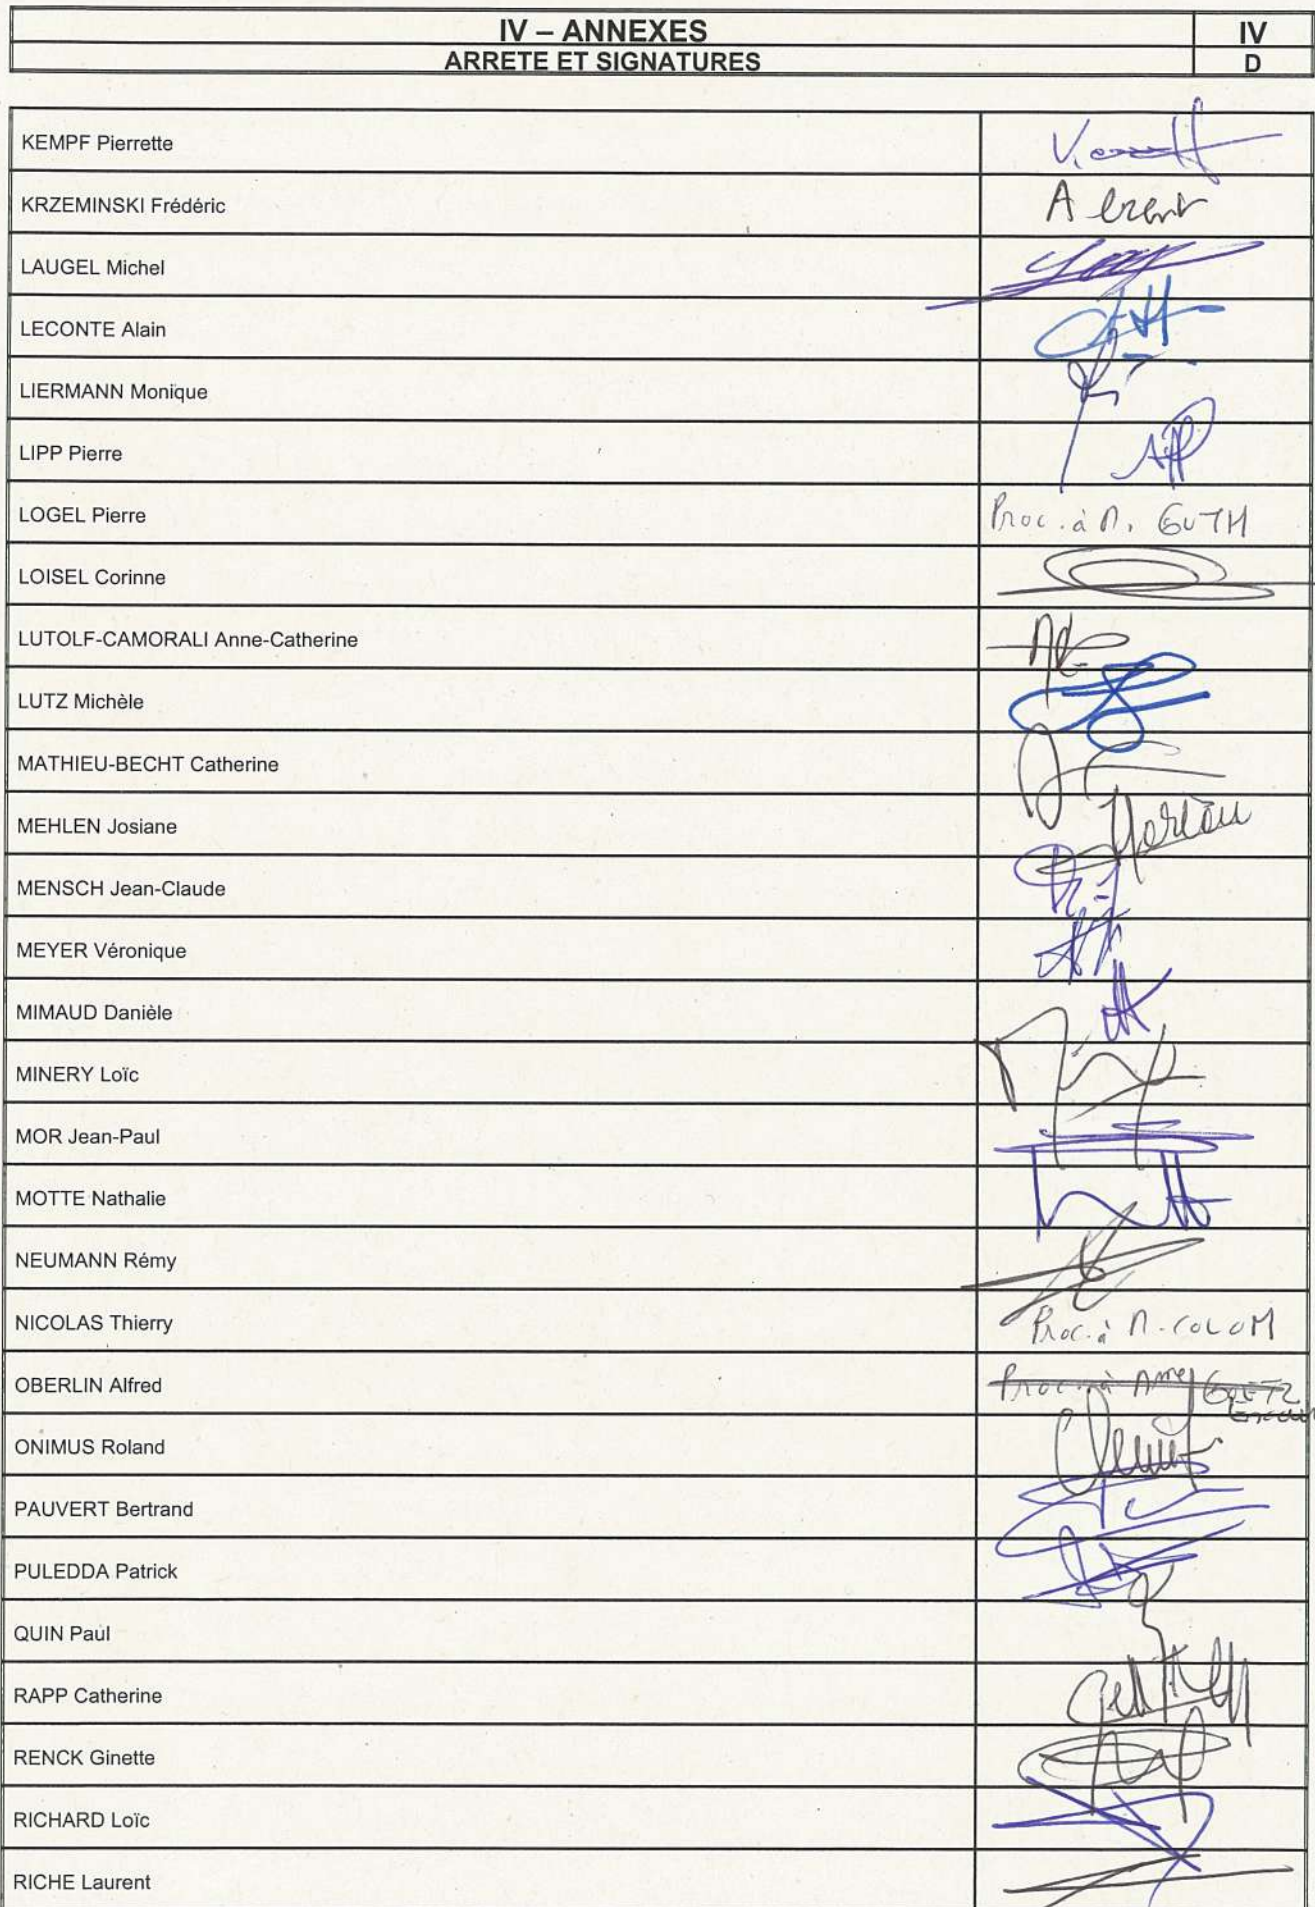 IV – ANNEXES IV
ARRETE ET SIGNATURES D
KEMPF Pierrette
KRZEMINSKI Frédéric
LAUGEL Michel
LECONTE Alain
LIERMANN Monique
LIPP Pierre
LOGEL Pierre Proc. à M. GUTH
LOISEL Corinne
LUTOLF-CAMORALI Anne-Catherine
LUTZ Michèle
MATHIEU-BECHT Catherine
MEHLEN Josiane
MENSCH Jean-Claude
MEYER Véronique
MIMAUD Danièle
MINERY Loïc
MOR Jean-Paul
MOTTE Nathalie
NEUMANN Rémy
NICOLAS Thierry Proc. à M. COLOM
OBERLIN Alfred Proc. à Mme GOETZ
ONIMUS Roland
PAUVERT Bertrand
PULEDDA Patrick
QUIN Paul
RAPP Catherine
RENCK Ginette
RICHARD Loïc
RICHE Laurent